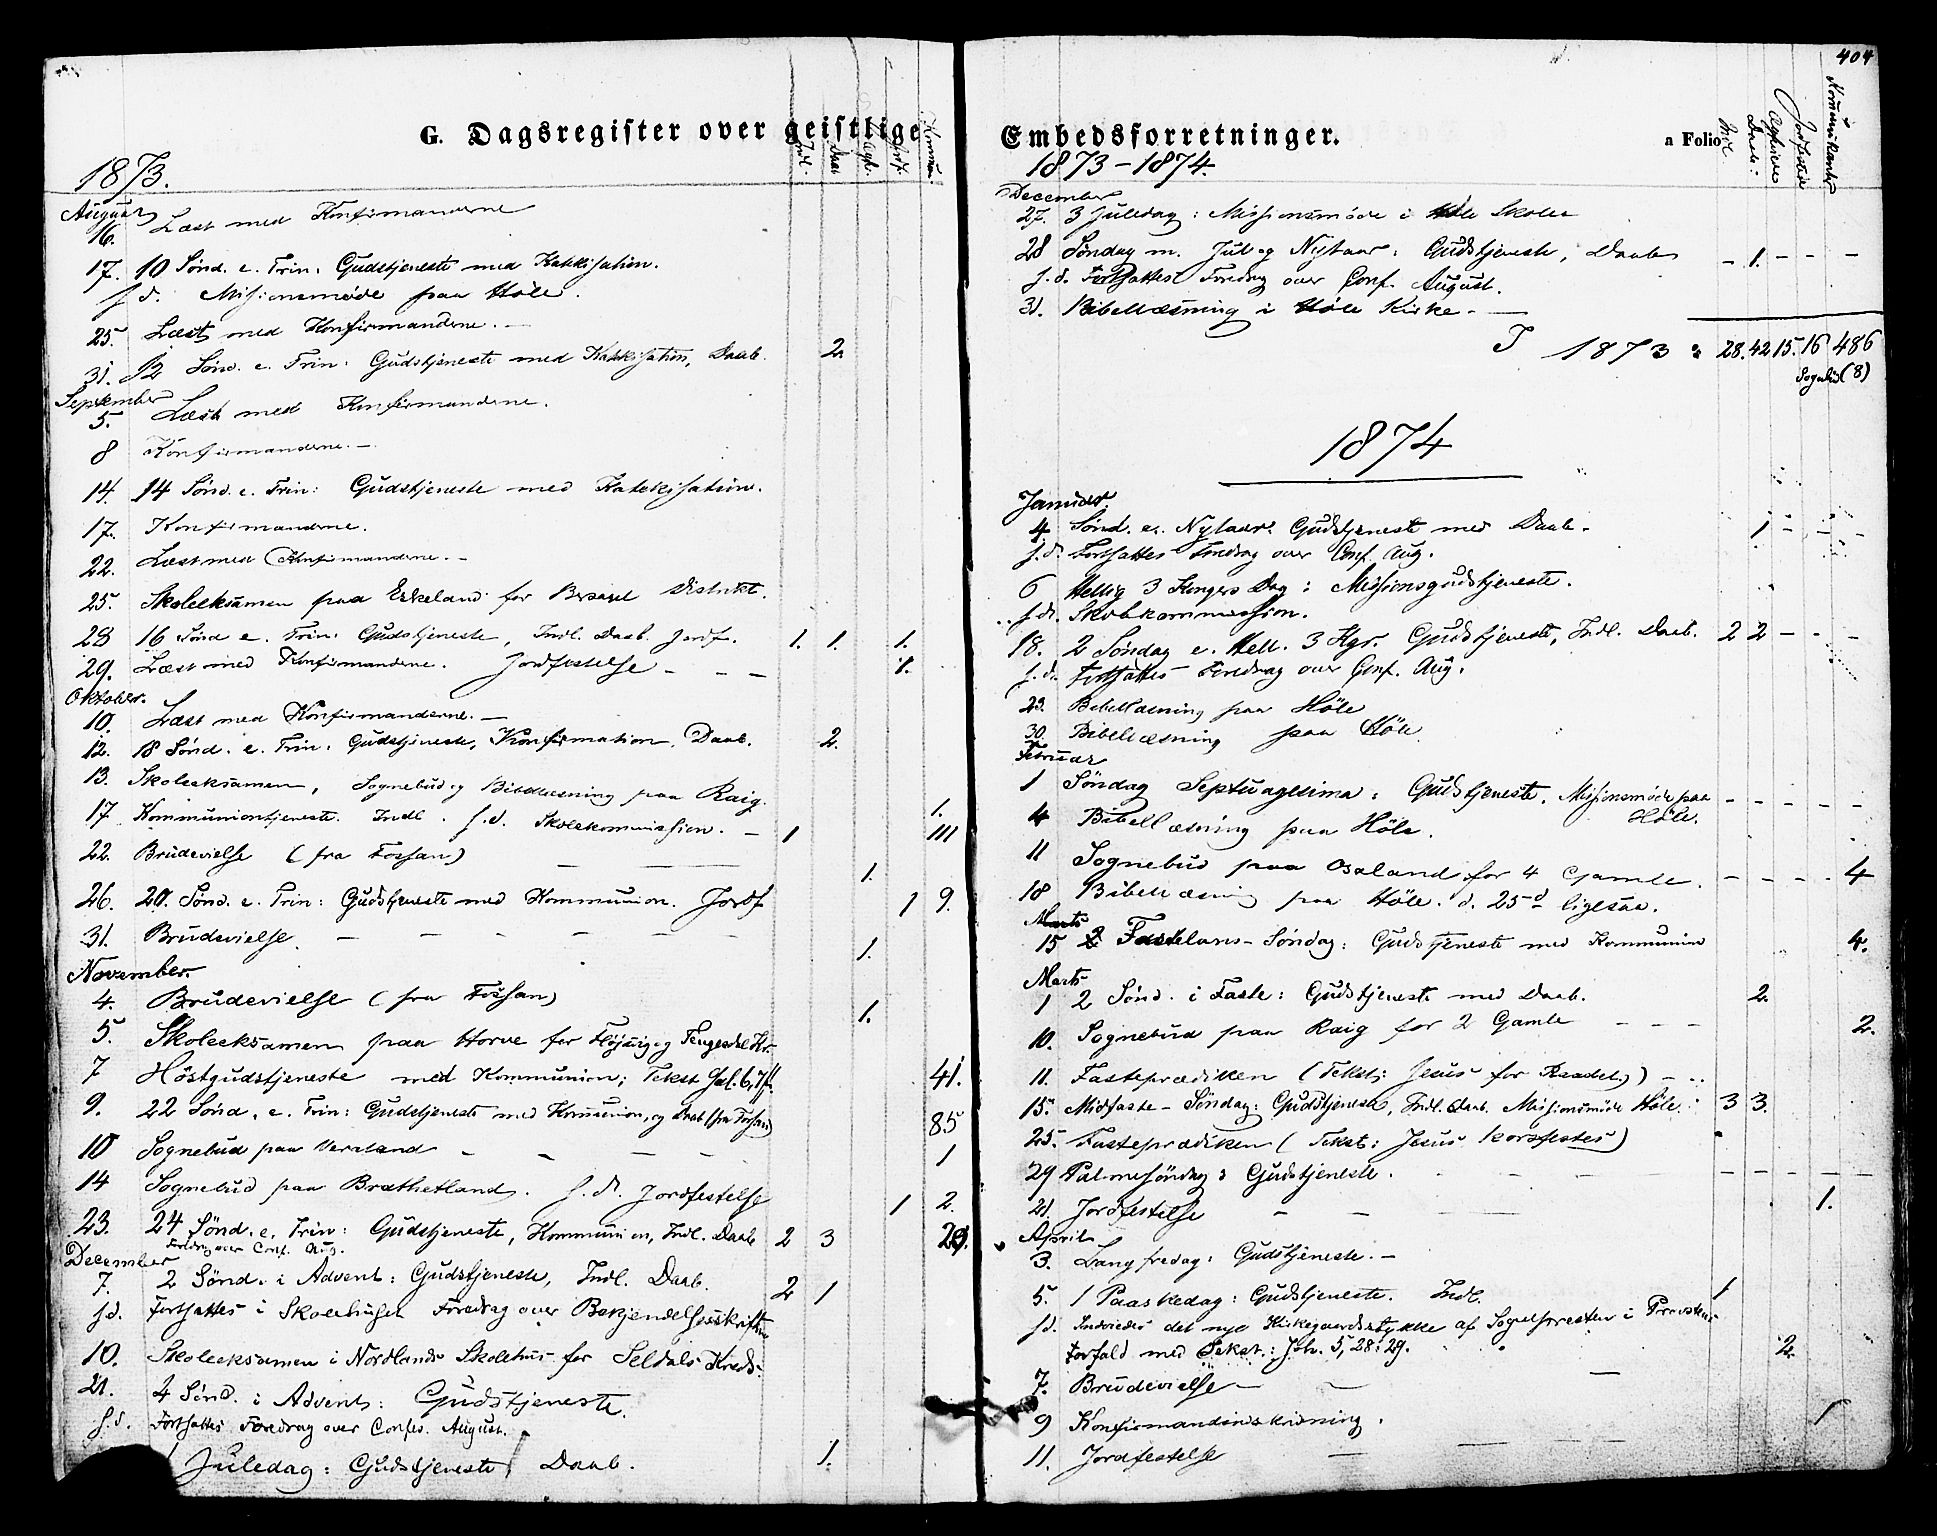 G. Dagsregister over geistlige
1873.
Indl. Daab Kommun.
August
16. Læst med Konfirmanderne
17. 10 Sønd. e. Trin: Gudstjeneste med Katekisation.
s. d. Missionsmøde paa Höle.
25. Læst med Konfirmanderne. –
31. 12 Sønd. e. Trin: Gudstjeneste med Katekisation, Daab. 2.
September
5. Læst med Konfirmanderne.
8 Konfirmanderne. –
14. 14 Sönd. e. Trin: Gudstjeneste med Katekisation.
17. Konfirmanderne.
22. Læst med Konfirmanderne. –
25. Skoleeksamen paa Eskeland for Bersavel Distrikt.
28 16 Sönd e. Trin: Gudstjeneste, Indl. Daab. Jordf. 1. 1. 1.
29. Læst med Konfirmanderne. Jordfestelse – – – 1.
Oktober.
10. Læst med Konfirmanderne. –
12. 18 Sönd. e. Trin: Gudstjeneste, Konfirmation, Daab. 2.
13. Skoleeksamen, Sognebud og Bibellæsning paa Raig. 1.
17 Kommuniontjeneste. Indl. s. d. Skolekommission. – 1 111
22. Brudevielse (fra Fossan) — — 1.
26. 20. Sönd. e. Trin: Gudstjeneste med Kommunion. Jordf 1 9.
31. Brudevielse. – – – – – – 1.
November.
4. Brudevielse (fra Fossan) 1.
5. Skoleeksamen paa Horve for Höjviig og Tengesdal Kr.
7 Höstgudstjeneste med Kommunion; Tekst Gal. 6, 7 ff. 41.
9. 22 Sönd. e. Trin: Gudstjeneste med Kommunion, og Daab (fra Fossan) 85
10 Sognebud paa Veraland – – – – 1
14 Sognebud paa Brathetland. s. d. Jordfestelse 1 2.
23. 24 Sönd. e. Trin: Gudstjeneste, Kommunion, Indl. Daab 2 3 29.
Foredrag over Conf. Aug.
December
7. 2 Sönd. i Advent: Gudstjeneste, Indl. Daab. 2 1
s. d. Fortsattes i Skolehuset Foredrag over Bekjendelsesskriftene
10. Skoleeksamen i Nordlands Skolehus for Seldals Kreds.
21. 4 Sönd. i Advent: Gudstjeneste.
s. d. Fortsattes Foredrag over Confes. August.
1 Juledag: Gudstjeneste, Daab. 1.
404
Embedsforretninger.
a Folio
1873–1874.
Indl Daab: Jordfestede Kommunikanter
December
27. 3 Juledag: Missionsmöde i Höle Skole
28 Söndag m. Jul og Nytaar: Gudstjeneste, Daab – 1. – – –
s. d. Fortsattes Foredrag over Conf. August.
31. Bibellæsning i Höle Kirke. –
I 1873: 28. 42 15. 16 486
Sognebud (8)
1874
Januar.
4 Sönd. e. Nytaar: Gudstjeneste med Daab. – 1 – – –
s. d. Fortsattes Foredrag over Conf. Aug.
6 Hellig 3 Kongers Dag: Missionsgudstjeneste.
s. d. Skolekommission.
18. 2 Söndag e. Hell. 3 Kgr. Gudstjeneste, Indl. Daab. 2 2 – – –
s. d. Fortsattes Foredrag over Conf. Aug.
23. Bibellæsning paa Höle
30. Bibellæsning paa Höle.
Februar
1 Söndag Septuagesima: Gudstjeneste. Missionsmöde paa Höle. – – – – –
4 Bibellæsning paa Höle.
11 Sognebud paa Osaland for 4 Gamle. – – – – 4
18 Bibellæsning paa Höle. d. 25de ligesaa.
Marts
15 Fastelavns–Söndag: Gudstjeneste med Kommunion 4.
Marts
1 2 Sönd. i Faste: Gudstjeneste med Daab. 2.
10. Sognebud paa Raig for 2 Gamle – – – 2.
11. Fasteprædiken (Tekst: Jesus for Raadet.) – –
15. Midfaste–Söndag: Gudstjeneste, Indl. Daab. Missionsmöde Höle. 3 3.
25. Fasteprædiken (Tekst: Jesus korsfestes)
29 Palmesöndag: Gudstjeneste. – – – – –
21. Jordfestelse – – – 1.
April
3. Langfredag: Gudstjeneste. –
5. 1 Paaskedag: Gudstjeneste. Indl. 1
s. d. Indviedes det nye Kirkegaardsstykke af Sognepresten i Provstens
Forfald med Tekst: Joh. 5, 28: 29.
7. Brudevielse – – – 2.
9 Konfirmandindskrivning.
11. Jordfestelse – – – – 1